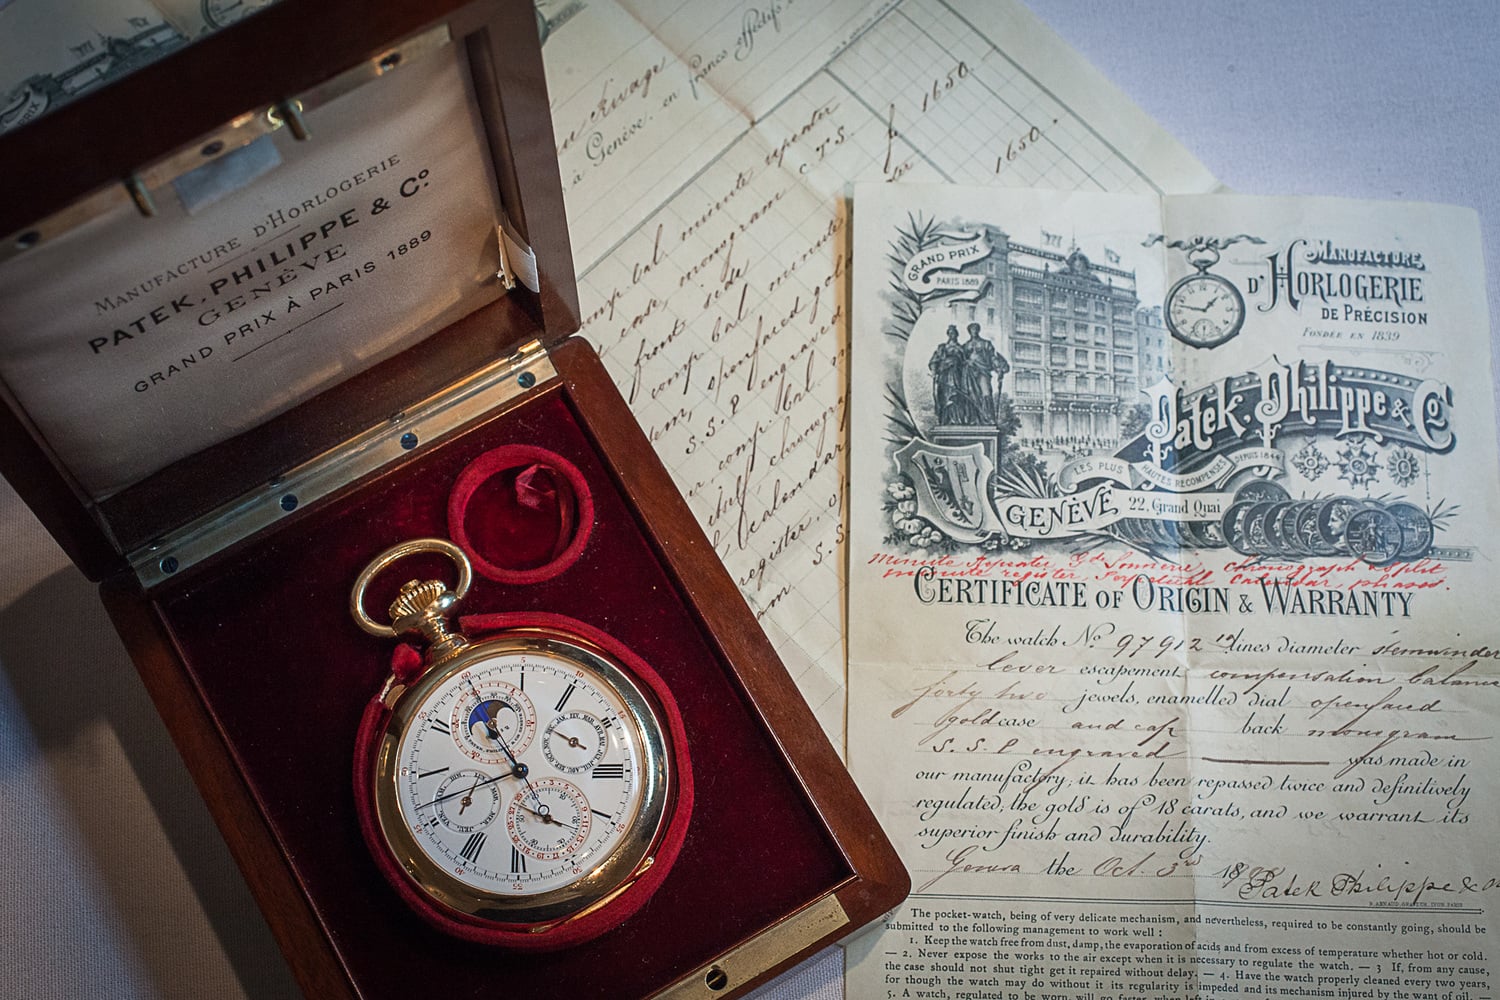 MANUFACTURE D'HORLOGERIE
PATEK, PHILIPPE & Cº
GENÈVE
GRAND PRIX À PARIS 1889
PRIX
à Genève. en francs effectifs
1650.
minute repeater
1650.
case, monogram C.T.S.
front side
comp. bal. minute
openfaced gold
S.S.P engraved
comp. bal.
chronograph
calendar
register
S.S.
GRAND PRIX
PARIS 1889
MANUFACTURE
D'HORLOGERIE
DE PRÉCISION
FONDÉE EN 1839
Patek, Philippe & Cº
LES PLUS HAUTES RÉCOMPENSES DEPUIS 1844
GENÈVE 22, Grand Quai
Minute Repeater, Gde Sonnerie, chronograph split
minute register, Perpetual Calendar, phases.
CERTIFICATE OF ORIGIN & WARRANTY
The watch Nº 97912 lines diameter stemwinder
lever escapement compensation balance
forty two jewels, enamelled dial openfaced
gold case and cap back monogram
S.S.P engraved was made in
our manufactory; it has been repassed twice and definitively
regulated; the gold is of 18 carats, and we warrant its
superior finish and durability.
Geneva the Oct. 3rd 18
Patek Philippe & Co
The pocket-watch, being of very delicate mechanism, and nevertheless, required to be constantly going, should be
submitted to the following management to work well :
1. Keep the watch free from dust, damp, the evaporation of acids and from excess of temperature whether hot or cold.
— 2. Never expose the works to the air except when it is necessary to regulate the watch. — 3 If, from any cause,
the case should not shut tight get it repaired without delay. — 4. Have the watch properly cleaned every two years,
for though the watch may do without it its regularity is impeded and its mechanism injured by the want of oil. —
5. A watch, regulated to be worn, will go faster, when left in